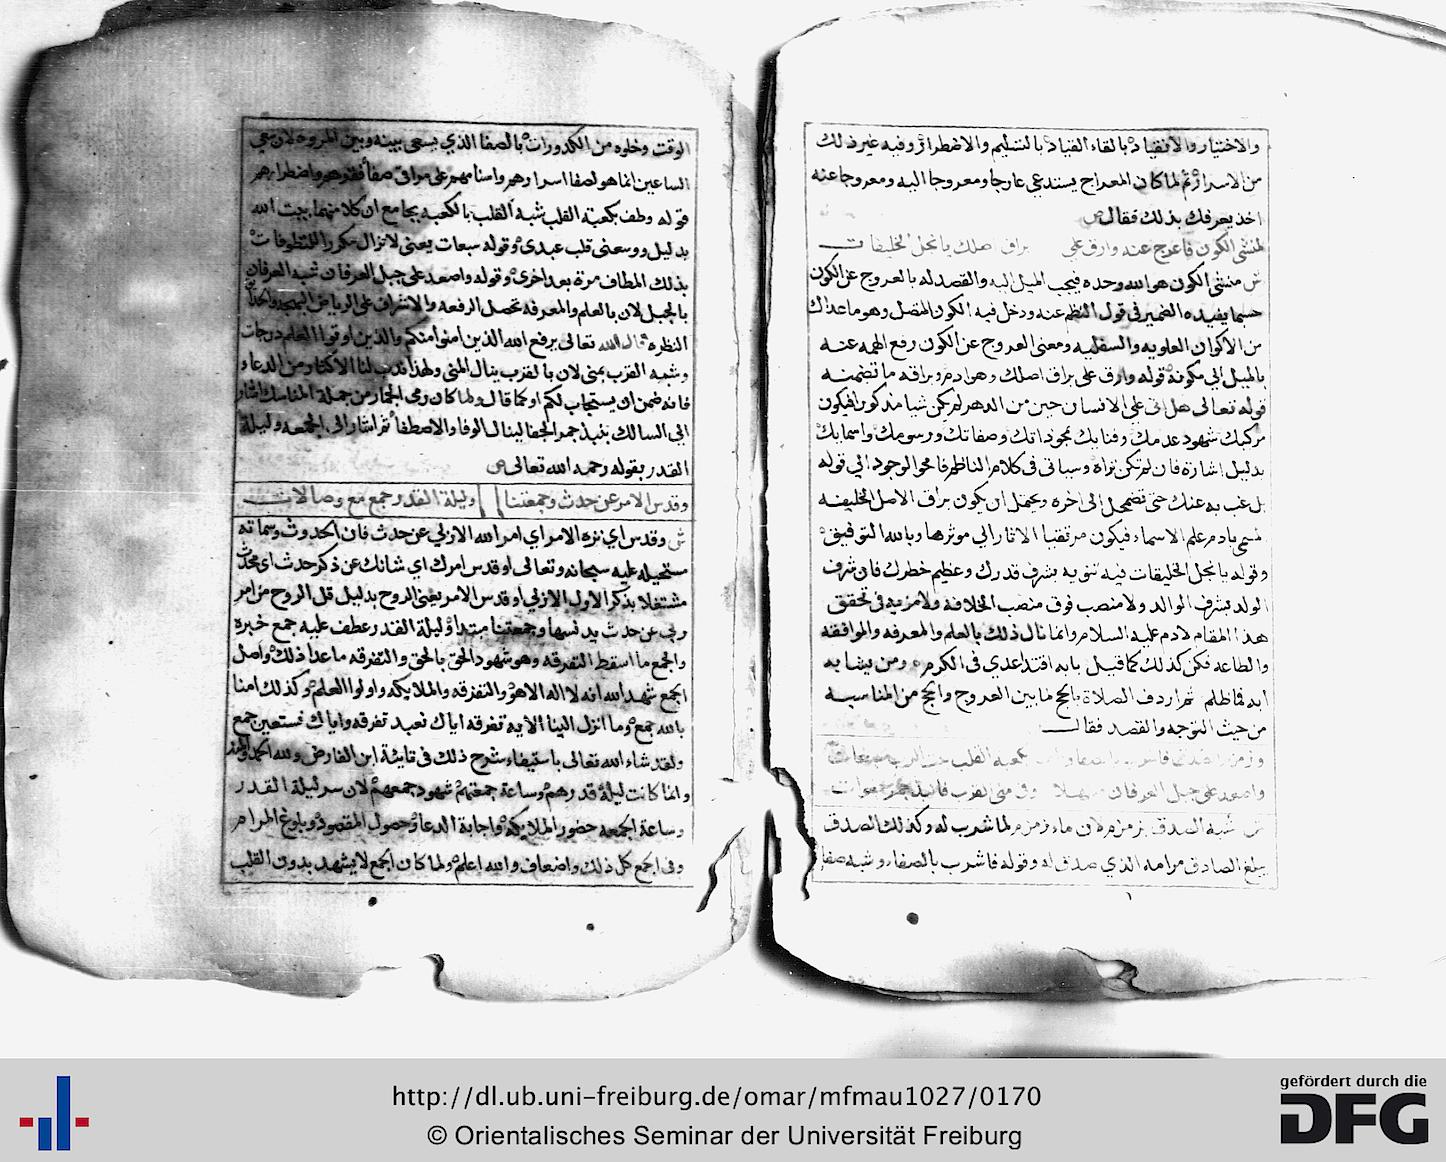 والاختيار والانقياد بالقاء القياد بالتسليم والاضطرار وفيه غير ذلك
من الاسرار ثم لما كان المعراج يستدعي عارجا ومعروجا اليه ومعروجا عنه
اخذ يعرفك بذلك فقال ص
لمنشى الكون فاعرج عنه وارق على براق اصلك يا نجل الخليفات
ش منشئ الكون هو الله وحده فيجب الميل اليه والقصد له بالعروج عن الكون
حسبما يفيده الضمير في قول الناظم عنه ودخل فيه الكون المتصل وهو ما عداك
من الأكوان العلويه والسفليه ومعنى العروج عن الكون رفع الهمه عنه
بالميل الي مكونه قوله وارق على براق اصلك وهو ادم وبراقه ما تضمنه
قوله تعالى هل اتى على الانسان حين من الدهر لم يكن شيا مذكورا فيكون
مركبك شهود عدمك وفنايك بمحو ذاتك وصفاتك ورسومك واسمايك
بدليل اشارة فان لم تكن تراه وسياتى فى كلام الناظم فامحو الوجود الي قوله
بل غب به عنك حتى تضمحل الى اخره ويحتمل ان يكون براق الاصل الخليفه
المسمى بادم علم الاسماء فيكون مرتقيا الاثار الي موثرها وبالله التوفيق
وقوله يا نجل الخليقات فيه تنويه بشرف قدرك وعظيم خطرك فان شرف
الولد بشرف الوالد ولا منصب فوق منصب الخلافه ولا مزيه فى تحقق
هذا المقام لادم عليه السلام وانما نال ذلك بالعلم والمعرفه والموافقه
والطاعه فكن كذلك كما قيل بابه اقتدا عدي فى الكرم ومن يشابه
ابه فما ظلم ثم اردف الصلاة بالحج لما بين العروج والحج من المناسبه
من حيث التوجه والقصد فقال
وزمزم الصدق فاشرب بالصفا بكعبة القلب
واصعد على جبل العرفان وفى منى القرب فانبذ جمر
ش شبه الصدق بزمزم لان ماء زمزم لما شرب له وكذلك الصدق
يبلغ الصادق مرامه الذي صدق له وقوله فاشرب بالصفاء وشبه صفا
الوقت وخلوه من الكدورات بالصفا الذي يسعى بينه وبين المروه لان سعي
الساعين انما هو لصفا اسرارهم واسنا مهم على مراقى صفا فقرهم واضطرارهم
قوله وطف بكعبة القلب شبه القلب بالكعبه بجامع ان كلا منهما بيت الله
بدليل ووسعنى قلب عبدى وقوله سبعات يعنى لا تزال مكررا للتطوفات
بذلك المطاف مرة بعد اخرى وقوله واصعد على جبل العرفان شبه العرفان
بالجبل لان بالعلم والمعرفه تحصل الرفعه والاشراف على الرياض
النظره قال الله تعالى يرفع الله الذين امنوا منكم والذين اوتوا العلم درجات
وشبه القرب بمنى لان بالقرب ينال المنى ولهذا ندب لنا الاكثار من الدعاء
فانه ضمن ان يستجاب لكم او كما قال ولما كان رمي الجمار من جملة المناسك اشار
الي السالك بنبذ جمر الجفا لينال الوفا والاصطفا ثم اشار الى الجمعه وليلة
القدر بقوله رحمه الله تعالى ص
وقدس الامر عن حدث وجمعتنا وليلة القدر جمع مع وصالات
ش وقدس اي نزه الامر اي امر الله الازلي عن حدث فان الحدوث وسماته
مستحيله عليه سبحانه وتعالى او قدس امرك اي شانك عن ذكر حدث اى محدث
مشتغلا بذكر الاول الازلي او قدس الامر يعنى الروح بدليل قل الروح من امر
ربي عن حدث يدنسها وجمعتنا مبتدا وليلة القدر عطف عليه جمع خبره
والجمع ما اسقط التفرقه وهو شهود الحق بالحق والتفرقه ما عدا ذلك واصل
الجمع شهد الله انه لا اله الا هو والتفرقه والملايكه واولوا العلم وكذلك امنا
بالله جمع وما انزل الينا الايه تفرقه اياك نعبد تفرقه واياك نستعين جمع
ولقد شاء الله تعالى باستيفاء شرح ذلك فى تايئة ابن الفارض ولله الحمد
وانما كانت ليلة قدرهم وساعة جمعتهم شهود جمعهم لان سر ليلة القدر
وساعة الجمعه حضور الملايكه واجابة الدعا وحصول المقصود وبلوغ المرام
وفى الجمع كل ذلك واضعاف والله اعلم ولما كان الجمع لا يشهد بدون القلب
http://dl.ub.uni-freiburg.de/omar/mfmau1027/0170
© Orientalisches Seminar der Universität Freiburg
gefördert durch die
DFG